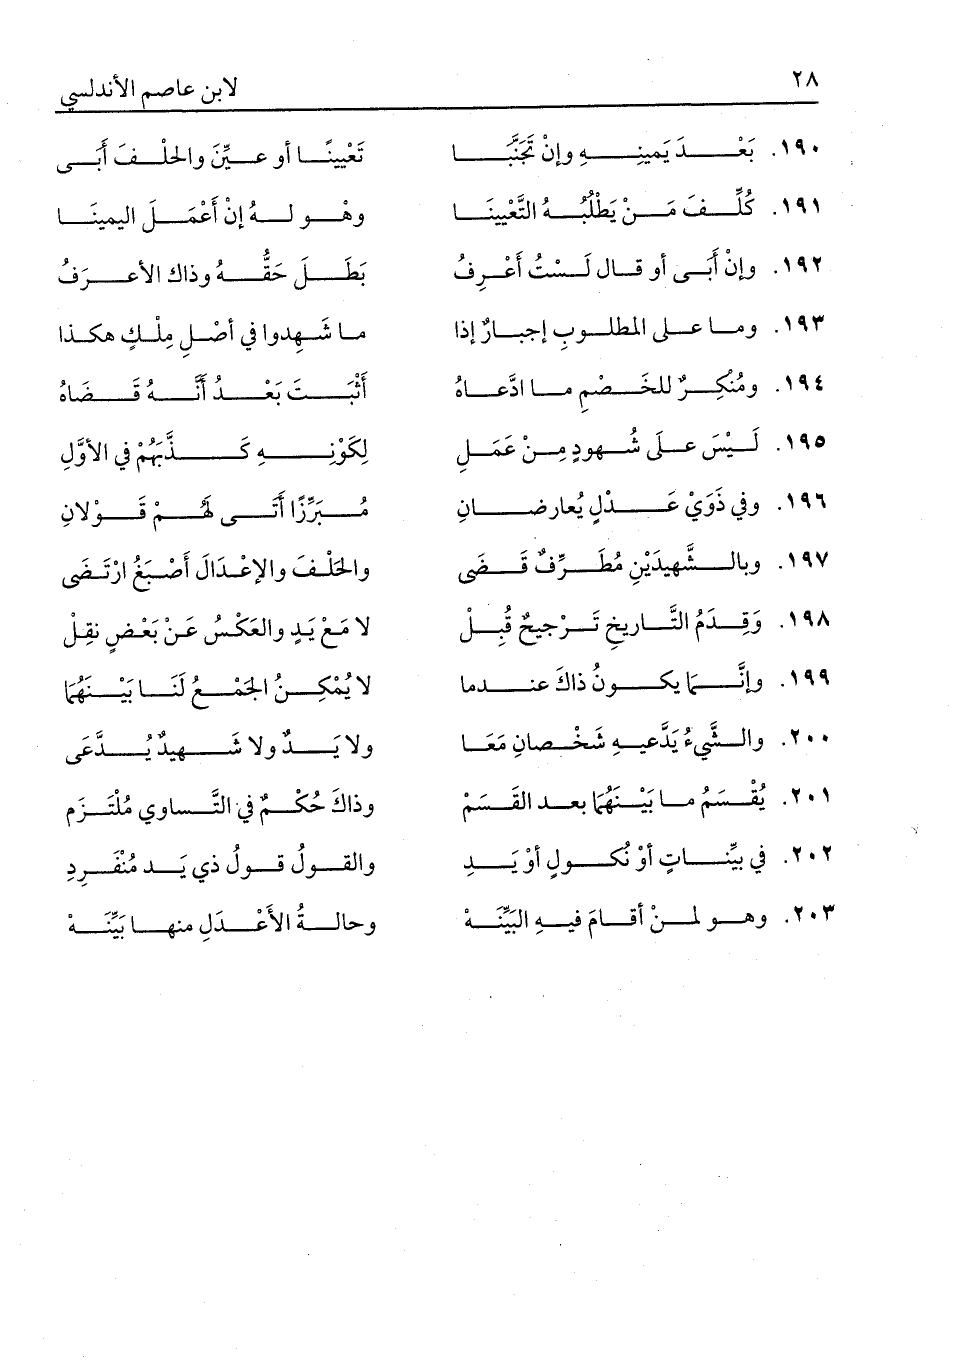 ٢٨ لابن عاصم الأندلسي
١٩٠. بَعْدَ يَمِينِهِ وإنْ تَجَنَّبَا تَعْيِينًا أو عيِّنَ والحْلفَ أَبَى
١٩١. كُلِّفَ مَنْ يَطْلُبُهُ التَّعْيِينَا وهْو لهُ إنْ أَعْمَلَ اليمينَا
١٩٢. وإنْ أَبَى أو قال لَسْتُ أَعْرِفُ بَطَلَ حَقُّهُ وذاك الأعرَفُ
١٩٣. وما على المطلوبِ إجبارٌ إذا ما شَهِدوا في أصْلِ مِلْكٍ هكذا
١٩٤. ومُنْكِرٌ للخَصْمِ ما ادَّعاهُ أَثْبَتَ بَعْدُ أنَّهُ قَضَاهُ
١٩٥. لَيْسَ على شُهودِهِ مِنْ عَمَلِ لِكَوْنِهِ كَذَّبَهُمْ في الأوَّلِ
١٩٦. وفي ذَوَيْ عَدْلٍ يُعارضانِ مُبَرِّزًا أَتَى لهُمْ قَوْلانِ
١٩٧. وبالشَّهيدَيْنِ مُطَرِّفٌ قَضَى والحَلْفَ والإعْدَالَ أَصْبَغُ ارْتَضَى
١٩٨. وَقِدَمُ التَّاريخِ تَرْجيحٌ قُبِلْ لا مَعَ يَدٍ والعَكْسُ عَنْ بَعْضٍ نقِلْ
١٩٩. وإنَّما يكونُ ذاكَ عندما لا يُمْكِنُ الجَمْعُ لَنَا بَيْنَهُمَا
٢٠٠. والشَّيءُ يَدَّعيهِ شَخْصانِ مَعَا ولا يَدٌ ولا شَهيدٌ يُدَّعَى
٢٠١. يُقْسَمُ ما بَيْنَهُمَا بعد القَسَمْ وذاكَ حُكْمٌ في التَّساوي مُلْتَزَم
٢٠٢. في بيِّنَاتٍ أوْ نُكولٍ أوْ يَدِ والقولُ قولُ ذي يَد مُنْفَرِدِ
٢٠٣. وهو لمنْ أقامَ فيهِ البَيِّنَةْ وحالةُ الأَعْدَلِ منها بَيِّنَةْ